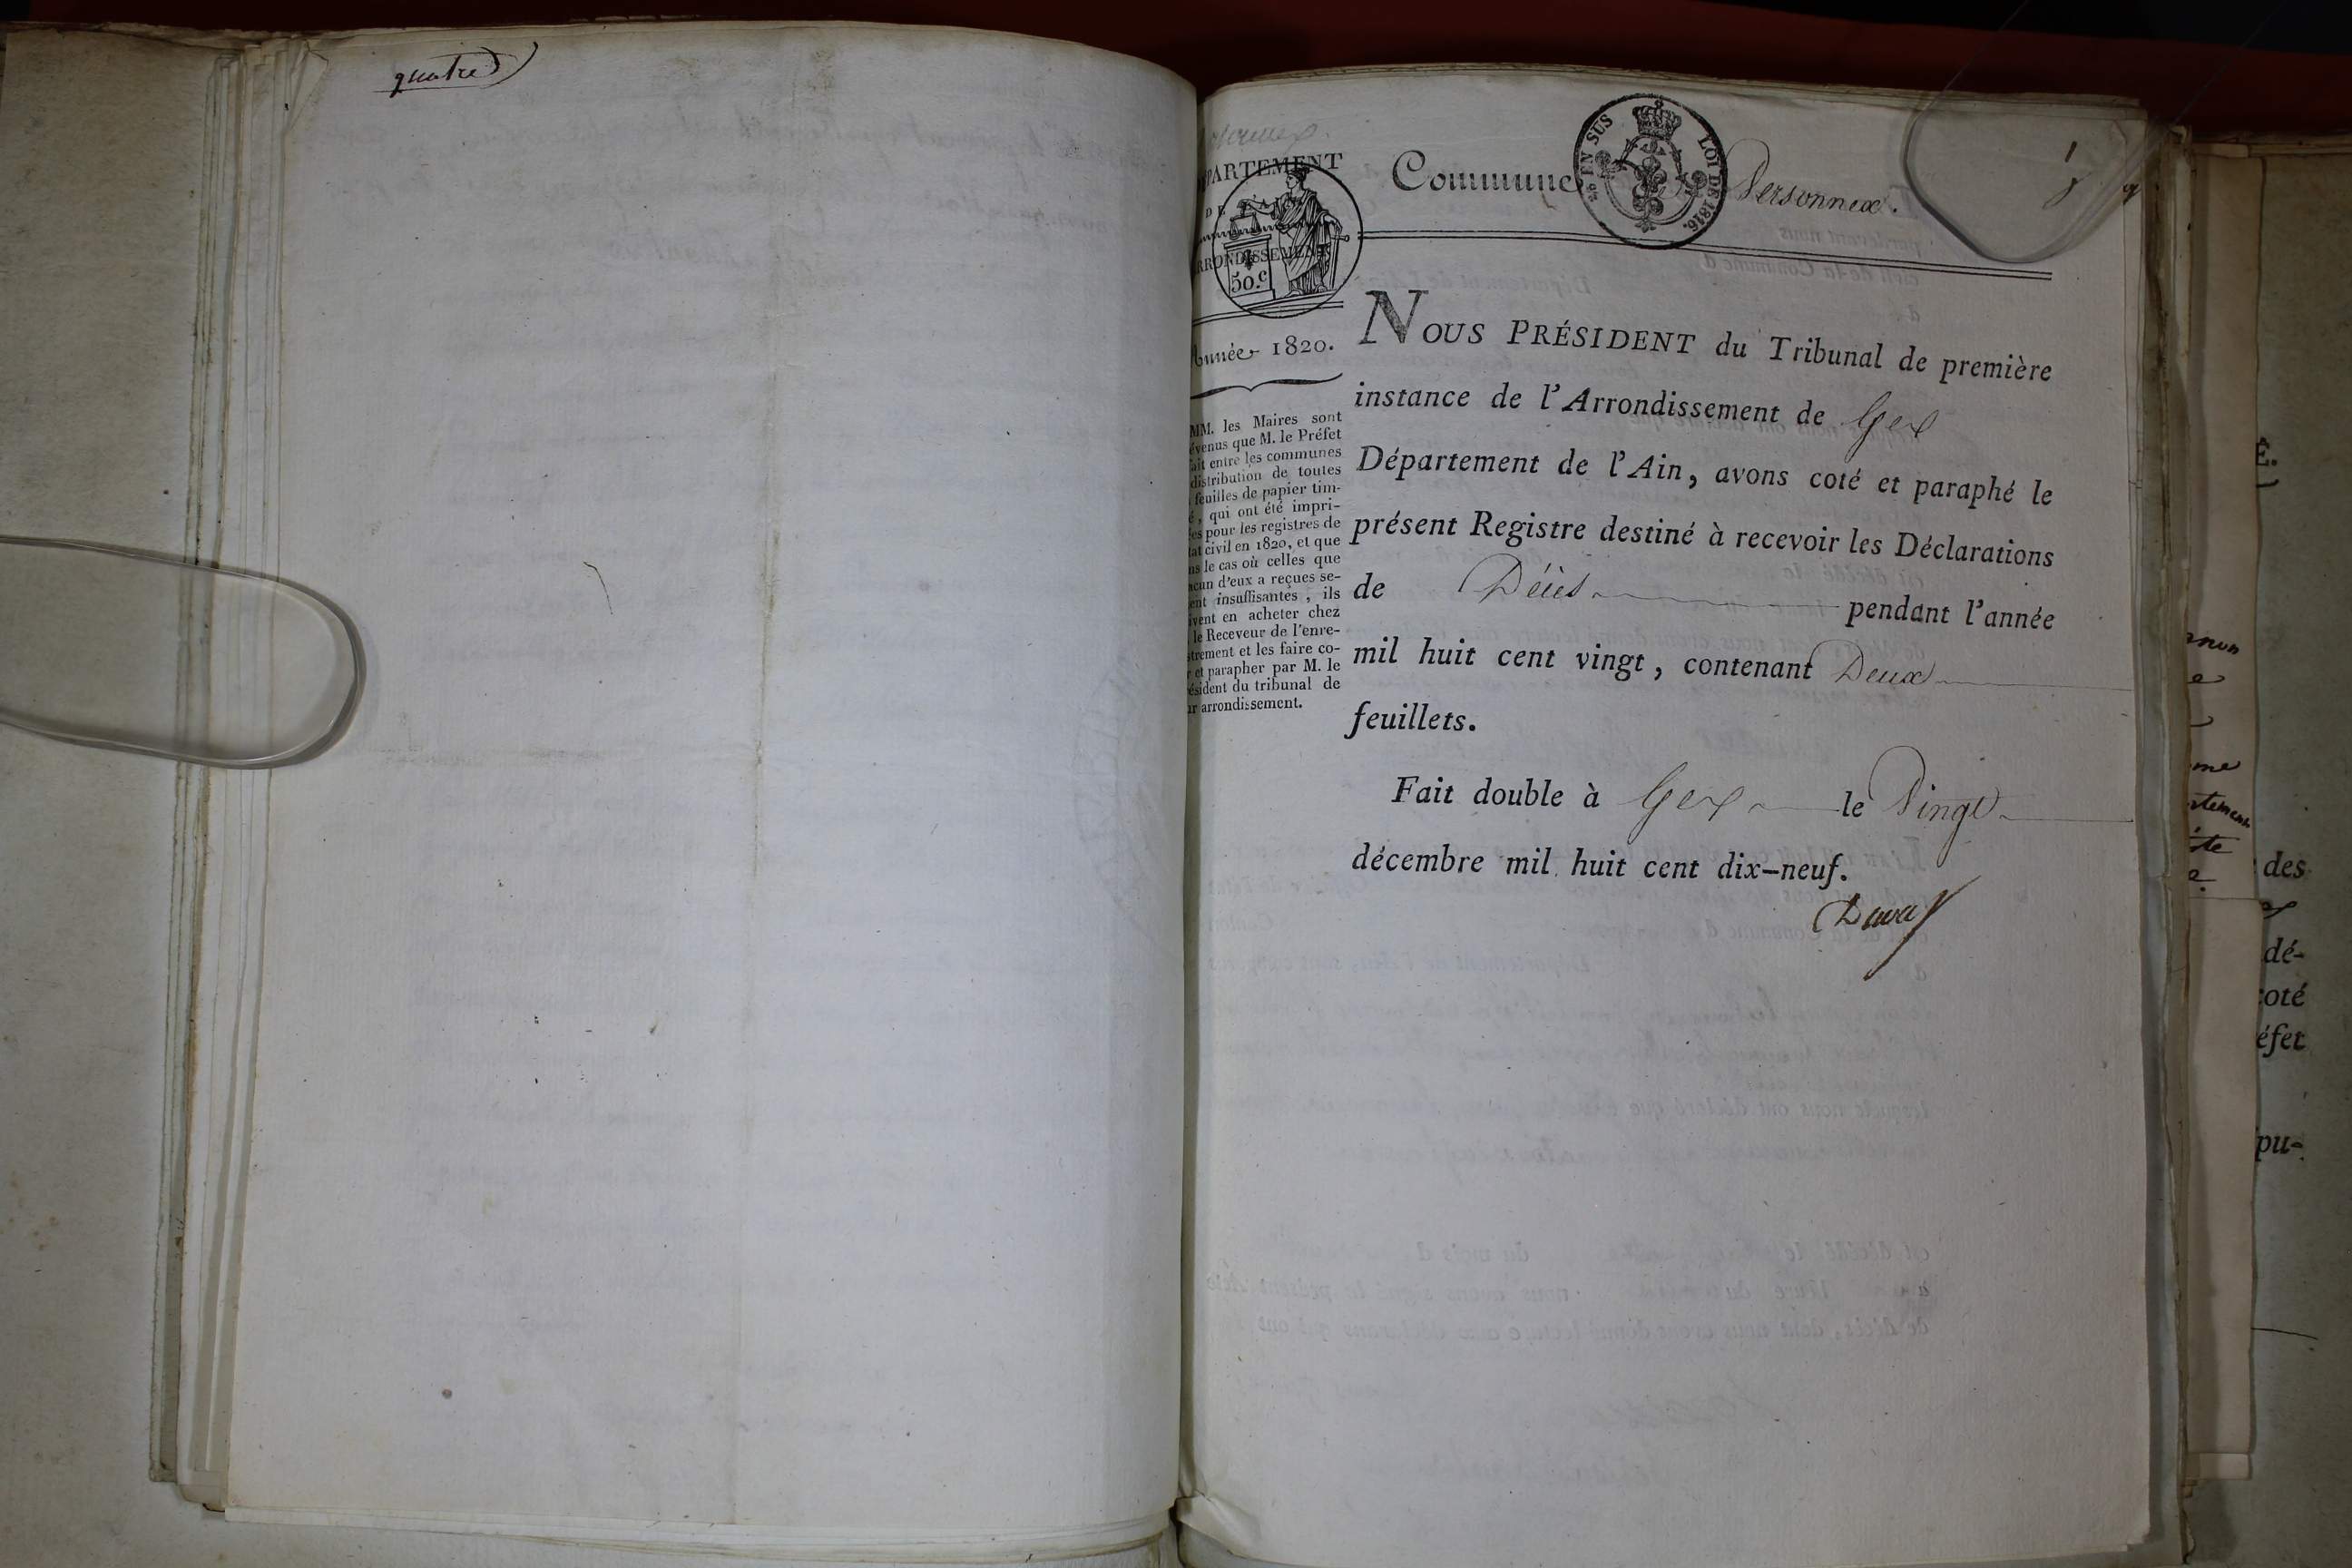 quatre
DÉPARTEMENT
DE L'AIN
ARRONDISSEMENT
50.c
Année 1820.
MM. les Maires sont
évenus que M. le Préfet
fait entre les communes
distribution de toutes
feuilles de papier tim-
é, qui ont été impri-
ées pour les registres de
tat civil en 1820, et que
ns le cas où celles que
acun d'eux a reçues se-
ent insuffisantes, ils
ivent en acheter chez
le Receveur de l'enre-
strement et les faire co-
r et parapher par M. le
ésident du tribunal de
ur arrondissement.
Commune Versonnex.
2e EN SUS LOI DE 1816.
NOUS PRÉSIDENT du Tribunal de première
instance de l'Arrondissement de Gex
Département de l'Ain, avons coté et paraphé le
présent Registre destiné à recevoir les Déclarations
de Décès pendant l'année
mil huit cent vingt, contenant Deux
feuillets.
Fait double à Gex le Vingt
décembre mil huit cent dix-neuf.
É.
des
dé-
coté
éfet
pu-